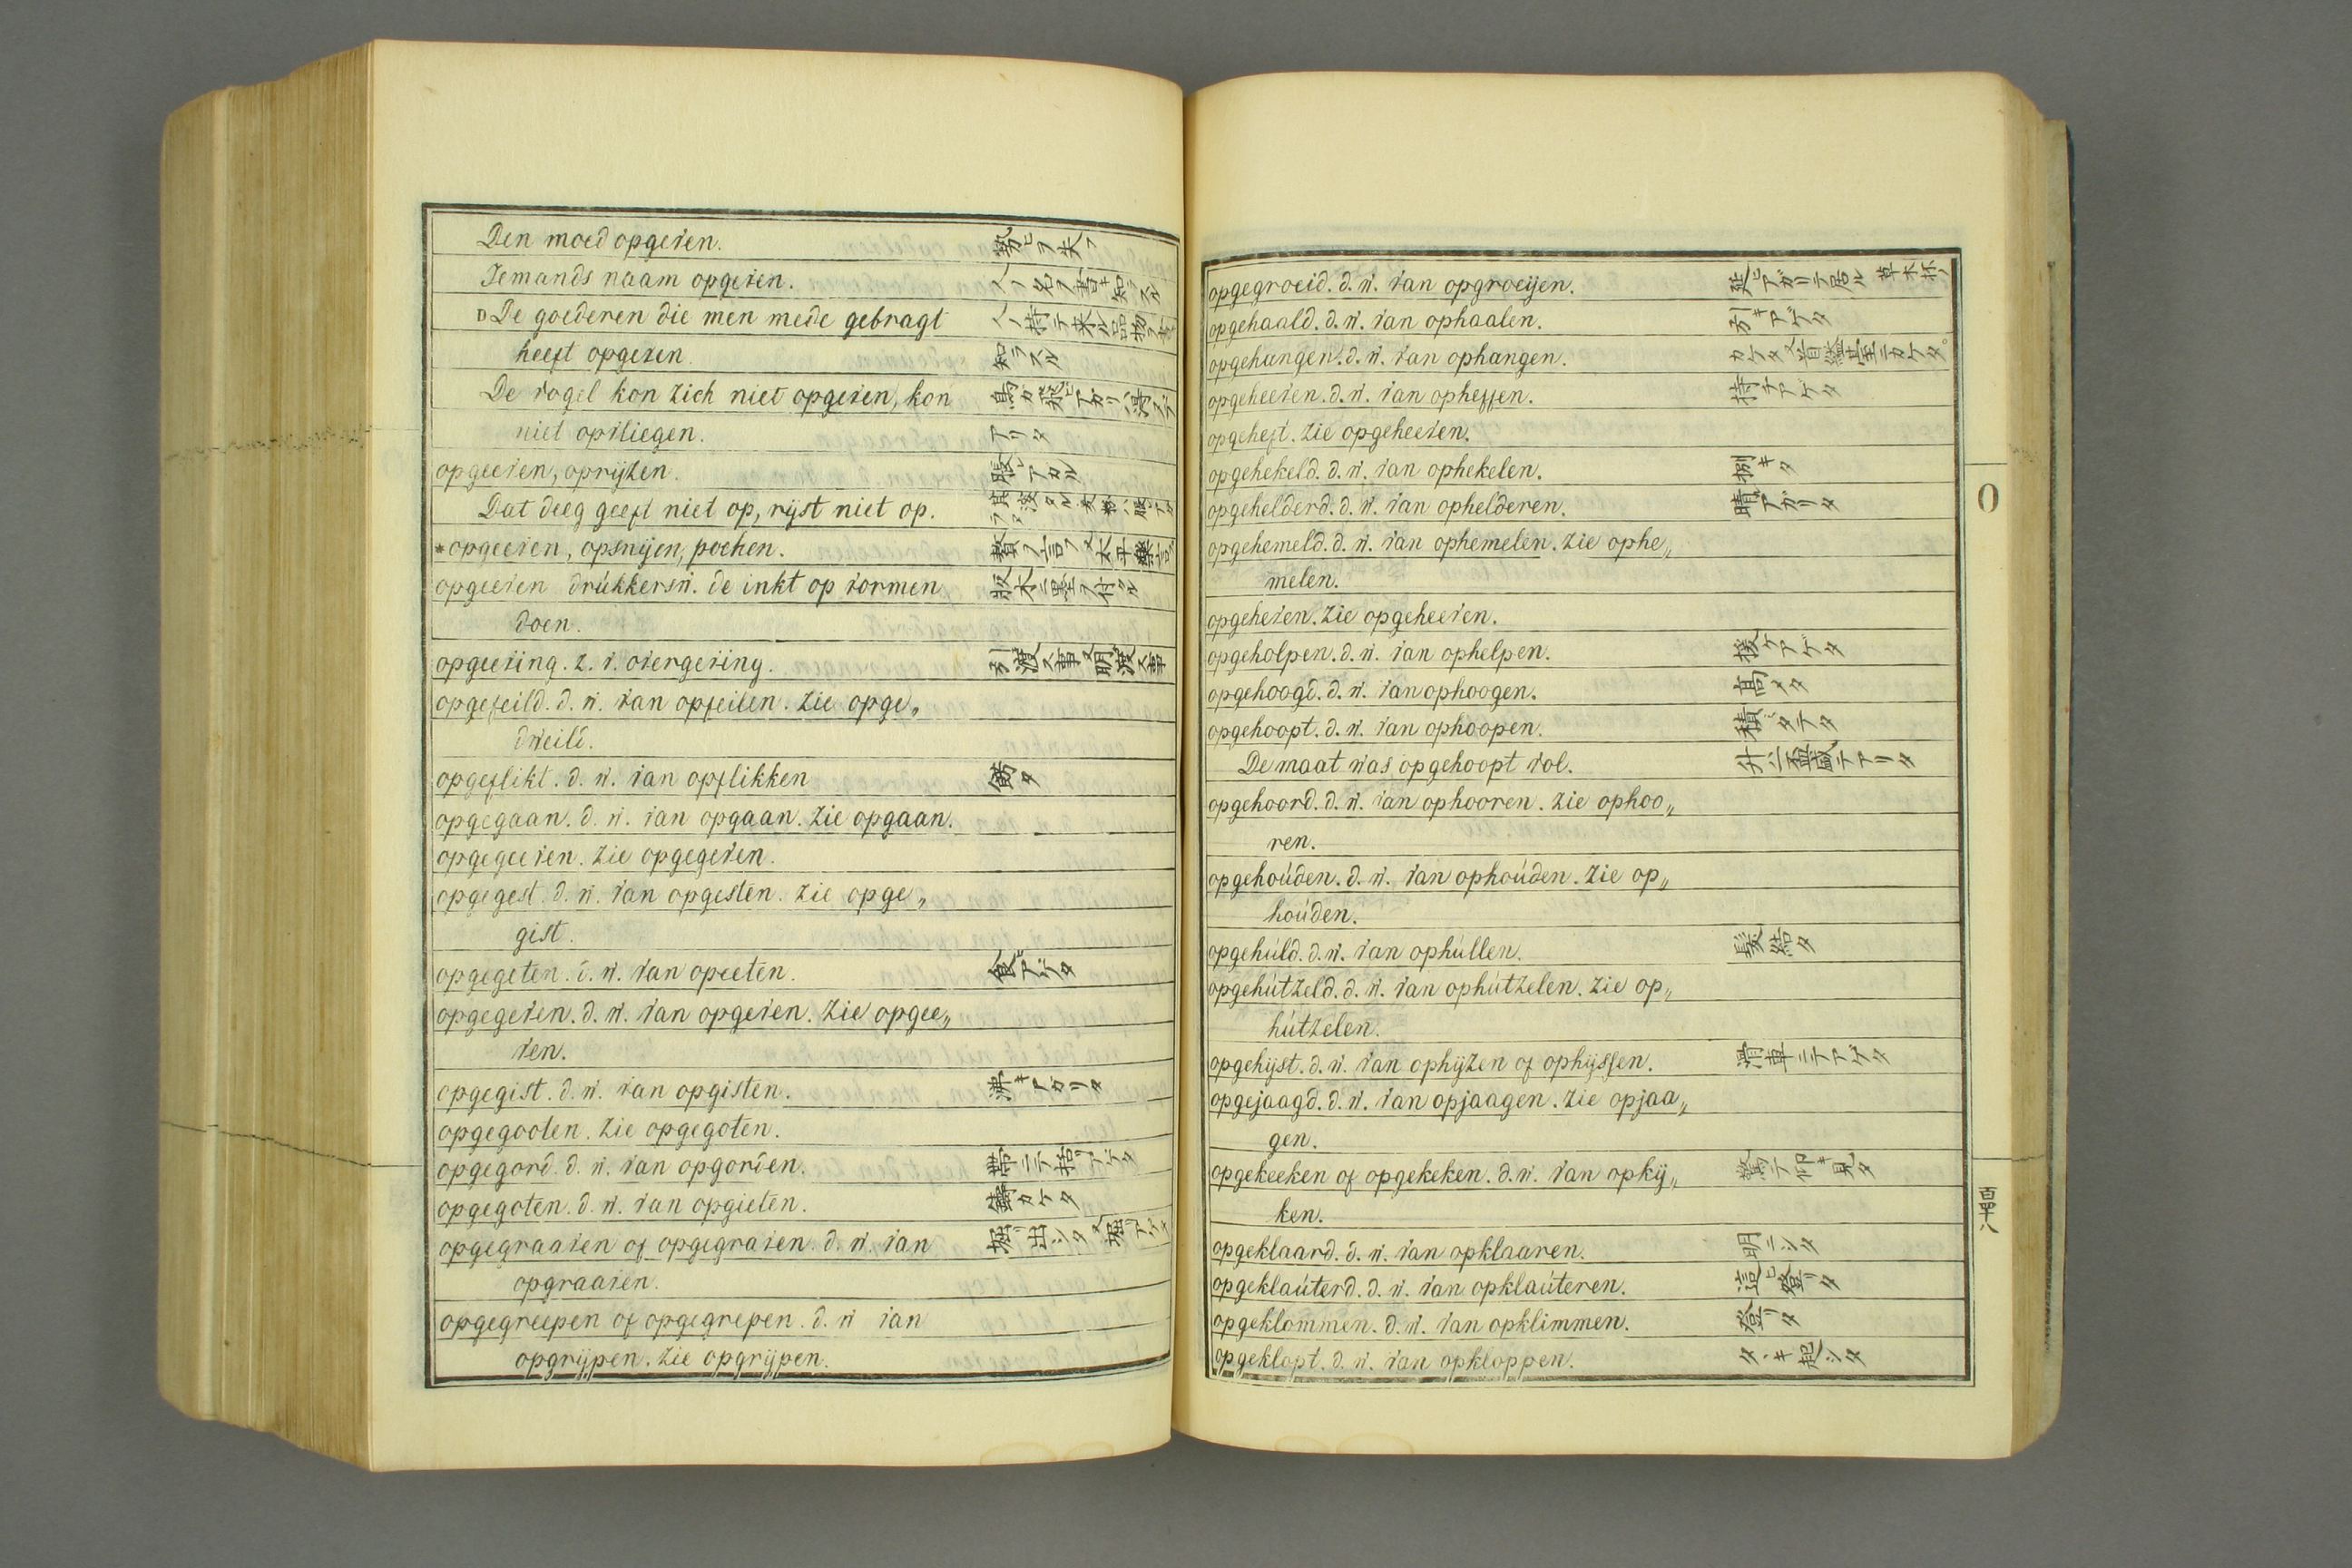 Den moed opgeven. 勢ヒヲ失フ
Iemands naam opgeven. 人ノ名ヲ書キ知ラスル
De goederen die men mede gebragt 人ノ持テ来ル品物ヲ書
heeft opgeven 知ラスル
De vogel kon zich niet opgeven, kon 鳥ガ飛ビアガリ得ズシテ
niet opvliegen. アリタ
opgeeven, oprijzen. 脹レアガル
Dat deeg geeft niet op, rijst niet op.
*opgeeven, opsnijen, pochen.
opgeeven drúkkersw. de inkt op vormen 版木ニ墨ヲ付ル
doen.
opgeeving. z. v. overgeving. 引渡ス事 又 明渡ス事
opgefeild. d. w. van opfeilen. zie opge„
dweild.
opgeflikt. d. w. van opflikken 餝タ
opgegaan. d. w. van opgaan. zie opgaan.
opgegeeven. zie opgegeven.
opgegest. d. w. van opgesten. zie opge„
gist.
opgegeten. d. w. van opeeten. 食ヒアゲタ
opgegeven. d. w. van opgeven. zie opgee„
ven.
opgegist. d. w. van opgisten. 沸キアガリタ
opgegooten. zie opgegoten.
opgegord. d. w. van opgorden. 帯ニテ括リアゲタ
opgegoten. d. w. van opgieten. 鋳カケタ
opgegraaven of opgegraven. d. w. van 堀リ出シタ 又 堀リアゲタ
opgraaven.
opgegreepen of opgegrepen. d. w van
opgrijpen. zie opgrijpen.
opgegroeid. d. w. van opgroeijen. 延ビアガリテ居ル 草木抔ノ
opgehaald. d. w. van ophaalen. 引キアゲタ
opgehangen. d. w. van ophangen. カケタ 又 首縊台ニカケタ
opgeheeven. d. w. van opheffen. 持チアゲタ
opgeheft. zie opgeheeven.
opgehekeld. d. w. van ophekelen.
opgehelderd. d. w. van ophelderen. 晴レアガリタ
opgehemeld. d. w. van ophemelen. zie ophe„
melen.
opgeheven. zie opgeheeven.
opgeholpen. d. w. van ophelpen. 援ケアゲタ
opgehoogd. d. w. van ophoogen. 高メタ
opgehoopt. d. w. van ophoopen. 積ミタテタ
De maat was opgehoopt vol. 升ハ一盃盛テアリタ
opgehoord. d. w. van ophooren. zie ophoo„
ren.
opgehoúden. d. w. van ophoúden. zie op„
hoúden.
opgehúld. d. w. van ophúllen. 髪結タ
opgehútzeld. d. w. van ophútzelen. zie op„
hútzelen.
opgehijst. d. w. van ophijzen of ophijssen. 滑車ニテアゲタ
opgejaagd. d. w. van opjaagen. zie opjaa„
gen.
opgekeeken of opgekeken. d. w. van opkij„ 驚テ仰キ見タ
ken.
opgeklaard. d. w. van opklaaren. 明ニシタ
opgeklaúterd. d. w. van opklaúteren. 這ヒ登リタ
opgeklommen. d. w. van opklimmen. 登リタ
opgeklopt. d. w. van opkloppen. タヽキ起シタ
O
百四十八